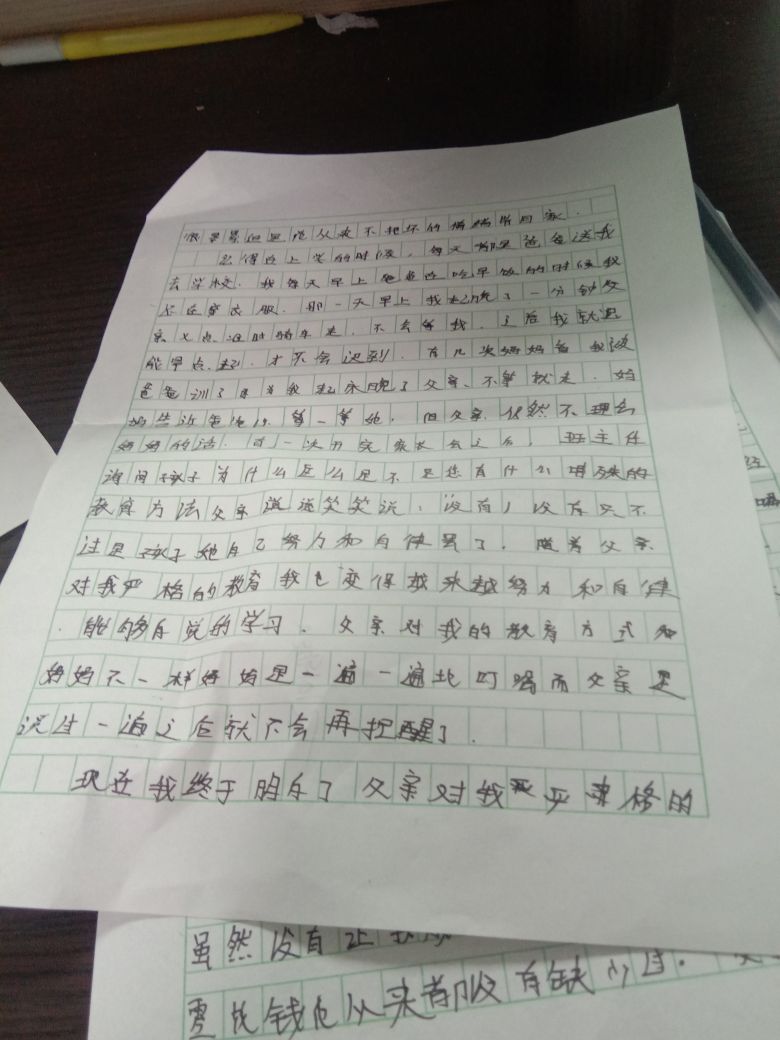 很是累但是他从来不把坏的情绪带回家.
记得在上学的时候,每天都是爸爸送我
去学校.我每天早上爸爸在吃早饭的时候我
还在穿衣服.那一天早上我起晚了一分钟父
亲七点准时骑车走.不会等我.之后我就尽
能早点起.才不会迟到.有几次妈妈看我被
爸爸训了因为我起床晚了父亲不等就走.妈
妈告诉爸爸让等一等她.但父亲依然不理会
妈妈的话.可一次开完家长会之后,班主任
询问孩子为什么这么是不是您有什么特殊的
教育方法父亲说说笑笑说:没有,没有只不
过是孩子她自己努力和自律罢了.随着父亲
对我严格的教育我也变得越来越努力和自律
.能够自觉的学习.父亲对我的教育方式和
妈妈不一样妈妈是一遍一遍地叮嘱而父亲是
说过一遍之后就不会再提醒了.
现在我终于明白了父亲对我严格的
虽然没有让我
零花钱也从来都没有缺少过.